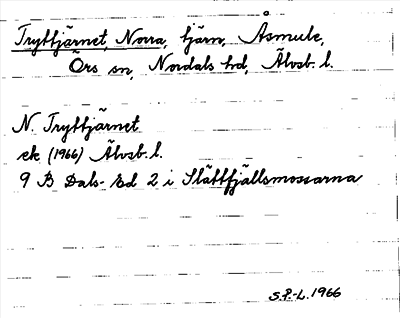 Tryttjärnet, Norra, tjärn, Åsmule,
Örs sn, Nordals hd, Älvsb. l.
N. Tryttjärnet
ek (1966) Älvsb. l.
9 B Dals-Ed 2 i Slättfjällsmossarna
S.P.-L. 1966